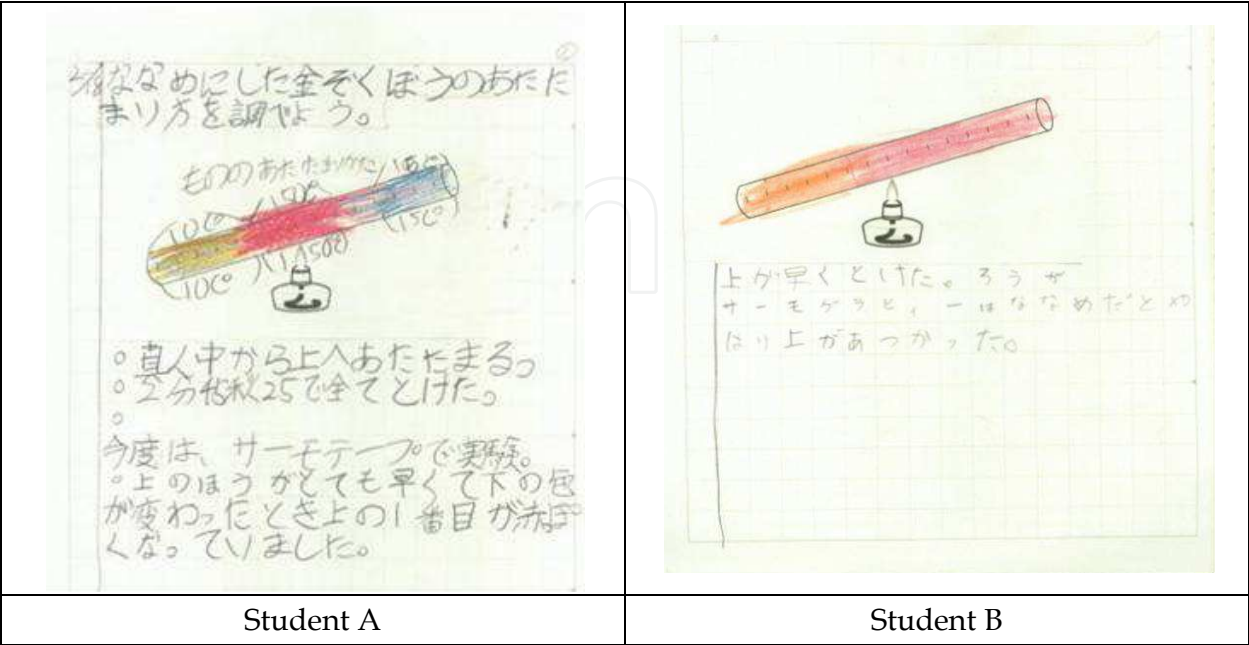 ななめにした金ぞくぼうのあたた
まり方を調べよう。
もののあたたまりかた
10C°
150°
10C°
15C°
真人中から上へあたたまるっ
2分 秒25で全てとけた。
今度は、サーモテープで実験。
上のほうがとても早くて下の色
が変わったとき上の1番目が赤ぽ
くなっていました。
Student A
上が早くとけた。ろうが
サーモグラフィーはななめだとや
はり上があつかった。
Student B